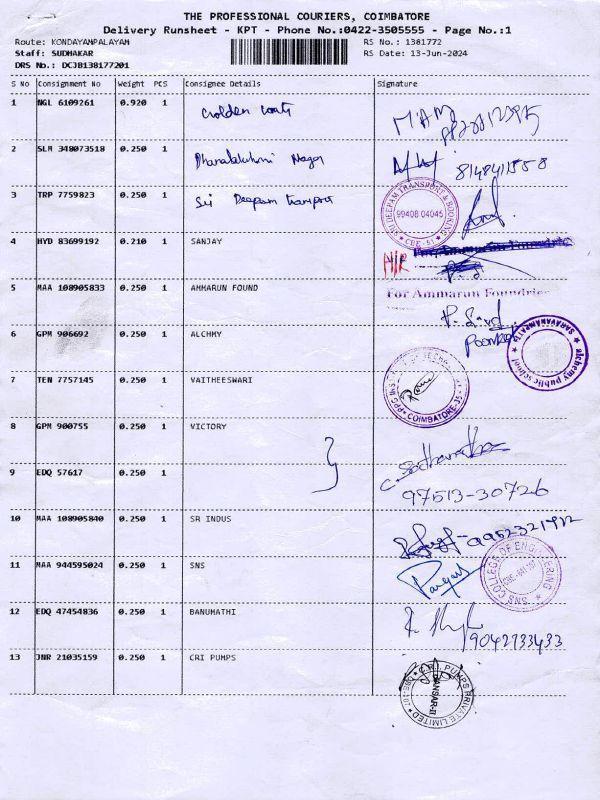 THE PROFESSIONAL COURIERS, COIMBATORE
Delivery Runsheet - KPT - Phone No.:0422-3505555 - Page No.:1
Route: KONDAYAMPALAYAM RS No.: 1381772
Staff: SUDHAKAR RS Date: 13-Jun-2024
DRS No.: DCJB138177201
S No Consignment No Weight PCS Consignee Details Signature
1 NGL 6109261 0.920 1
2 SLM 348073518 0.250 1 Dhanalakshmi Nagar 8148411558
3 TRP 7759823 0.250 1 Sri Deepam transport
SRI DEEPAM TRANSPORT & BOOKING
99408 04045
CBE-51
4 HYD 83699192 0.210 1 SANJAY
5 MAA 108905833 0.250 1 AMMARUN FOUND For Ammarun Foundries
6 GPM 906692 0.250 1 ALCHMY
alchemy public school
SARAVANAMPATTI
7 TEN 7757145 0.250 1 VAITHEESWARI
COIMBATORE-35
8 GPM 900755 0.250 1 VICTORY
9 EDQ 57617 0.250 1 97513-30726
10 MAA 108905840 0.250 1 SR INDUS 9952321912
11 MAA 944595024 0.250 1 SNS
SNS COLLEGE OF ENGINEERING
12 EDQ 47454836 0.250 1 BANUMATHI 9042733433
13 JNR 21035159 0.250 1 CRI PUMPS
C.R.I. PUMPS PRIVATE LIMITED